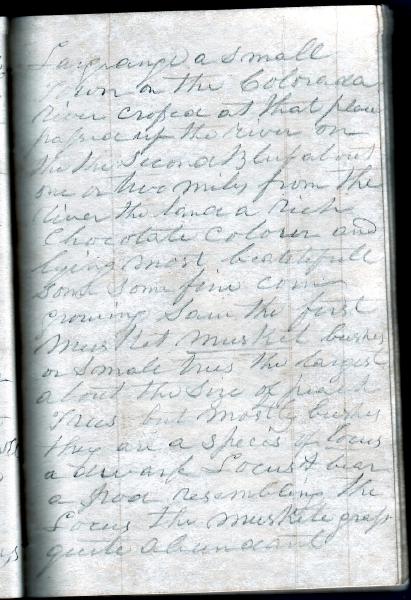 Lagrange a small
Town on the Colorada
River crossed at that place
passed up the river on
the the Second Bluf about
one or two miles from the
River the land a rich
Chocolate Colorer and
lying most beautifull
some fine corn
growing Saw the first
Musket musket bushes
or Small trees the largest
about the Size of peach
Trees but mostly bushes
they are a species of locus
a dwarf Locust bear
a pod resembling the
Locus the muskete grass
quite abundant